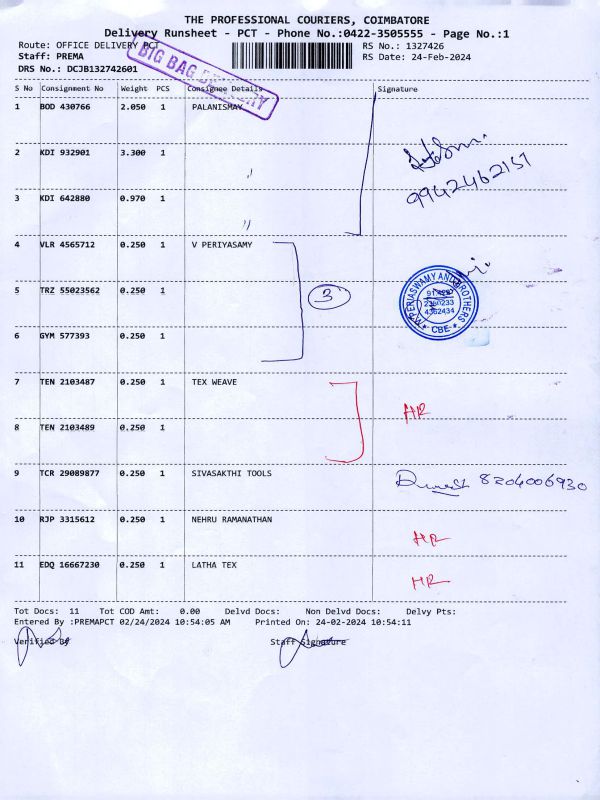 THE PROFESSIONAL COURIERS, COIMBATORE
Delivery Runsheet - PCT - Phone No.:0422-3505555 - Page No.:1
Route: OFFICE DELIVERY PCT RS No.: 1327426
Staff: PREMA RS Date: 24-Feb-2024
DRS No.: DCJB132742601
BIG BAG DELIVERY
S No Consignment No Weight PCS Consignee Details Signature
1 BOD 430766 2.050 1 PALANISMAY
2 KDI 932901 3.300 1 "
9942462157
3 KDI 642880 0.970 1 "
4 VLR 4565712 0.250 1 V PERIYASAMY
5 TRZ 55023562 0.250 1 3
6 GYM 577393 0.250 1
CBE
7 TEN 2103487 0.250 1 TEX WEAVE HR
8 TEN 2103489 0.250 1
9 TCR 29089877 0.250 1 SIVASAKTHI TOOLS 8204006930
10 RJP 3315612 0.250 1 NEHRU RAMANATHAN HR
11 EDQ 16667230 0.250 1 LATHA TEX HR
Tot Docs: 11 Tot COD Amt: 0.00 Delvd Docs: Non Delvd Docs: Delvy Pts:
Entered By :PREMAPCT 02/24/2024 10:54:05 AM Printed On: 24-02-2024 10:54:11
Verified By Staff Signature